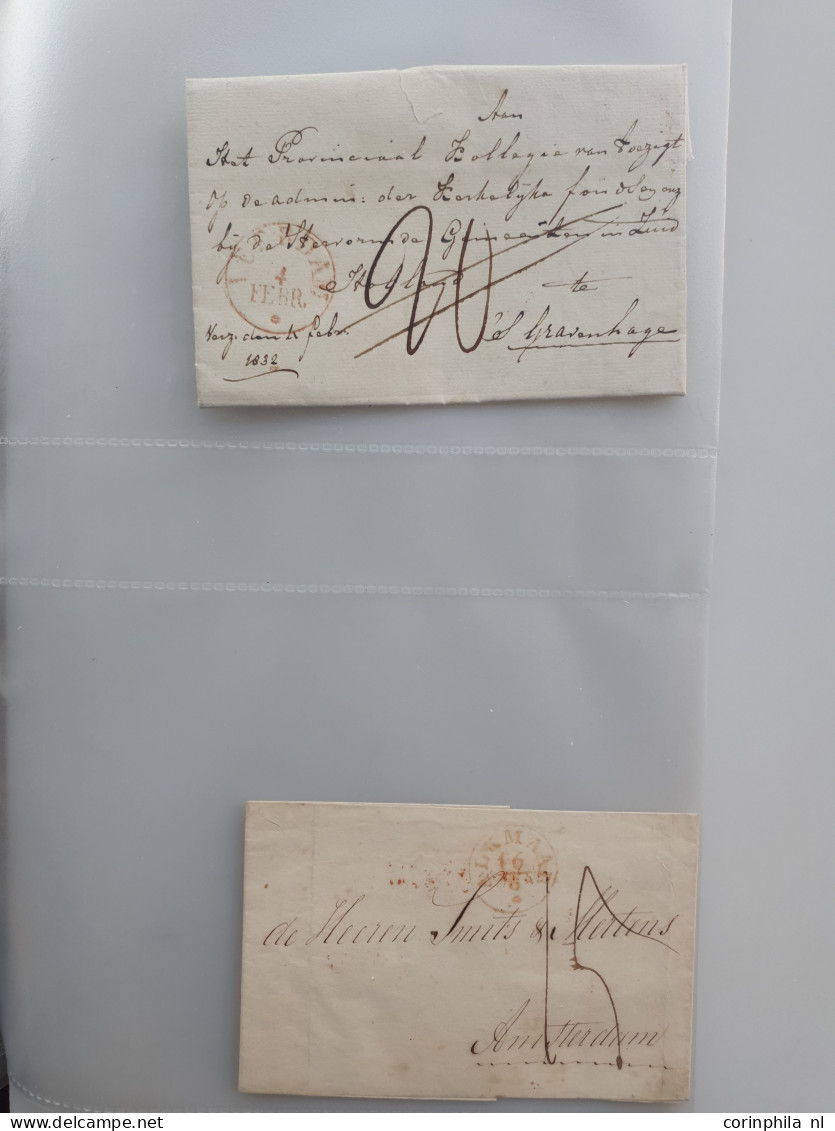 Aan
Het Provinciaal Kollegie van Toezigt
op de admin: der Kerkelijke fondsen enz
bij de Hervormde Gemeenten in Zuid
Holland te
's Gravenhage
Verz: den 4 febr.
1832
ALKMAAR
4
FEBR.
20
ALKMAAR
16
de Heeren Smits & Mertens
15
Amsterdam
corinphila nl